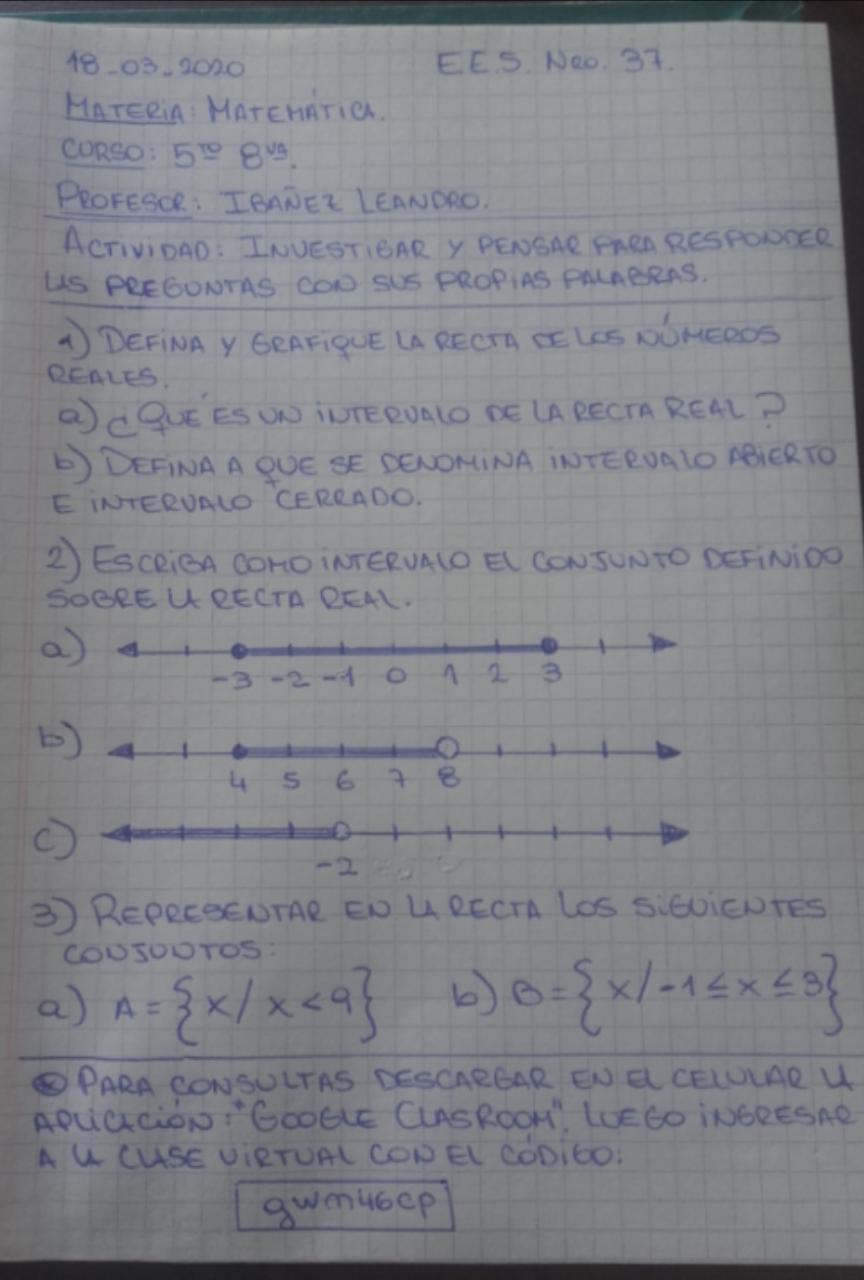 18-03-2020 E.E.S. Nro. 37.
MATERIA: MATEMÁTICA.
CURSO: 5TO 8va.
PROFESOR: IBAÑEZ LEANDRO.
ACTIVIDAD: INVESTIGAR Y PENSAR PARA RESPONDER
LAS PREGUNTAS CON SUS PROPIAS PALABRAS.
1) DEFINA Y GRAFIQUE LA RECTA DE LOS NÚMEROS
REALES.
a) ¿QUÉ ES UN INTERVALO DE LA RECTA REAL?
b) DEFINA A QUE SE DENOMINA INTERVALO ABIERTO
E INTERVALO CERRADO.
2) ESCRIBA COMO INTERVALO EL CONJUNTO DEFINIDO
SOBRE LA RECTA REAL.
a)
-3 -2 -1 0 1 2 3
b)
4 5 6 7 8
c)
-2
3) REPRESENTAR EN LA RECTA LOS SIGUIENTES
CONJUNTOS:
a) A = {x/ x < 9} b) B = {x/ -1 ≤ x ≤ 3}
PARA CONSULTAS DESCARGAR EN EL CELULAR LA
APLICACIÓN: "GOOGLE CLASROOM". LUEGO INGRESAR
A LA CLASE VIRTUAL CON EL CÓDIGO:
gwm46cp